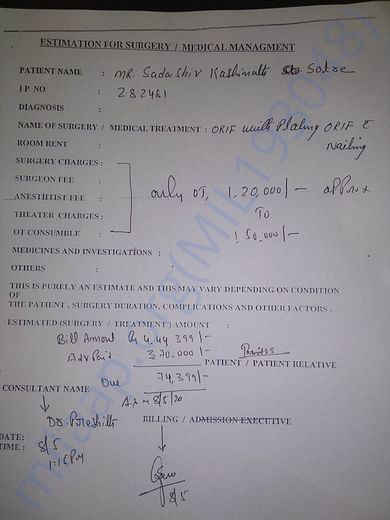 ESTIMATION FOR SURGERY / MEDICAL MANAGMENT
PATIENT NAME : MR. Sadashiv Kashinath Solse
I.P NO : 282481
DIAGNOSIS :
NAME OF SURGERY / MEDICAL TREATMENT : ORIF with Plating ORIF c̄
Nailing
ROOM RENT :
SURGERY CHARGES :
SURGEON FEE :
ANESTHTIST FEE : only OT, 1,20,000/- approx
THEATER CHARGES : TO
OT CONSUMBLE : 1,50,000/-
MEDICINES AND INVESTIGATIONS :
OTHERS :
THIS IS PURELY AN ESTIMATE AND THIS MAY VARY DEPENDING ON CONDITION
OF
THE PATIENT , SURGERY DURATION, COMPLICATIONS AND OTHER FACTORS .
ESTIMATED (SURGERY / TREATMENT ) AMOUNT :
Bill Amount Rs 4,44,399/-
Adv Paid 3,70,000/-
PATIENT / PATIENT RELATIVE
Due 74,399/-
CONSULTANT NAME
As on 8/5/20
BILLING / ADMISSION EXECUTIVE
DATE: 8/5
TIME : 1:15 PM
8/5
milaap.org(MIL198048)